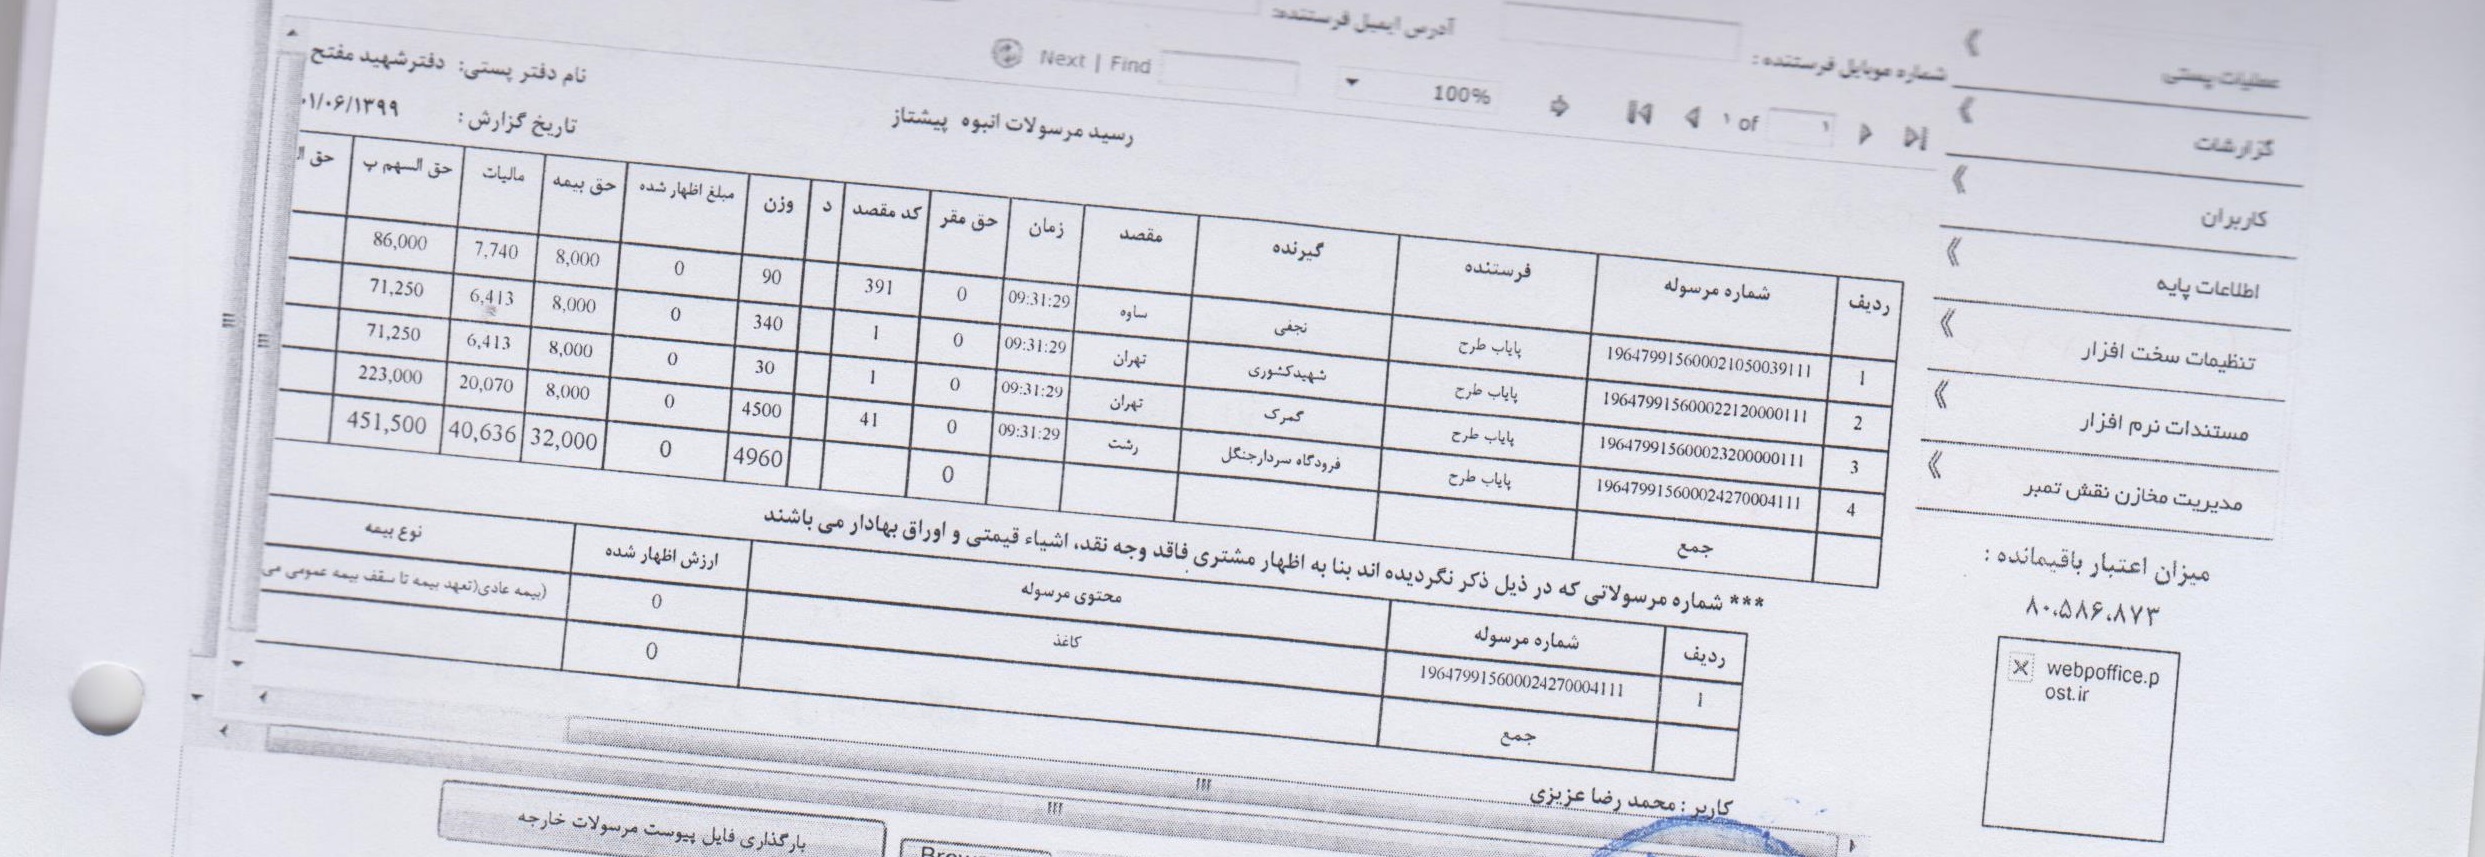 آدرس ایمیل فرستنده:
شماره موبایل فرستنده :
Next | Find
100%
۱ of ۱
نام دفتر پستی: دفترشهید مفتح
تاریخ گزارش : ۰۱/۰۶/۱۳۹۹
رسید مرسولات انبوه پیشتاز
ردیف شماره مرسوله فرستنده گیرنده مقصد زمان حق مقر کد مقصد د وزن مبلغ اظهار شده حق بیمه مالیات حق السهم پ حق ا
1 196479915600021050039111 پایاب طرح نجفی ساوه 09:31:29 0 391 90 0 8,000 7,740 86,000
2 196479915600022120000111 پایاب طرح شهیدکشوری تهران 09:31:29 0 1 340 0 8,000 6,413 71,250
3 196479915600023200000111 پایاب طرح گمرک تهران 09:31:29 0 1 30 0 8,000 6,413 71,250
4 196479915600024270004111 پایاب طرح فرودگاه سردارجنگل رشت 09:31:29 0 41 4500 0 8,000 20,070 223,000
جمع 0 4960 0 32,000 40,636 451,500
*** شماره مرسولاتی که در ذیل ذکر نگردیده اند بنا به اظهار مشتری فاقد وجه نقد، اشیاء قیمتی و اوراق بهادار می باشند
ردیف شماره مرسوله محتوی مرسوله ارزش اظهار شده نوع بیمه
1 196479915600024270004111 کاغذ 0 (بیمه عادی(تعهد بیمه تا سقف بیمه عمومی می
جمع 0
کاربر : محمد رضا عزیزی
بارگذاری فایل پیوست مرسولات خارجه
عملیات پستی
گزارشات
کاربران
اطلاعات پایه
تنظیمات سخت افزار
مستندات نرم افزار
مدیریت مخازن نقش تمبر
میزان اعتبار باقیمانده :
۸۰،۵۸۶،۸۷۳
webpoffice.p
ost.ir